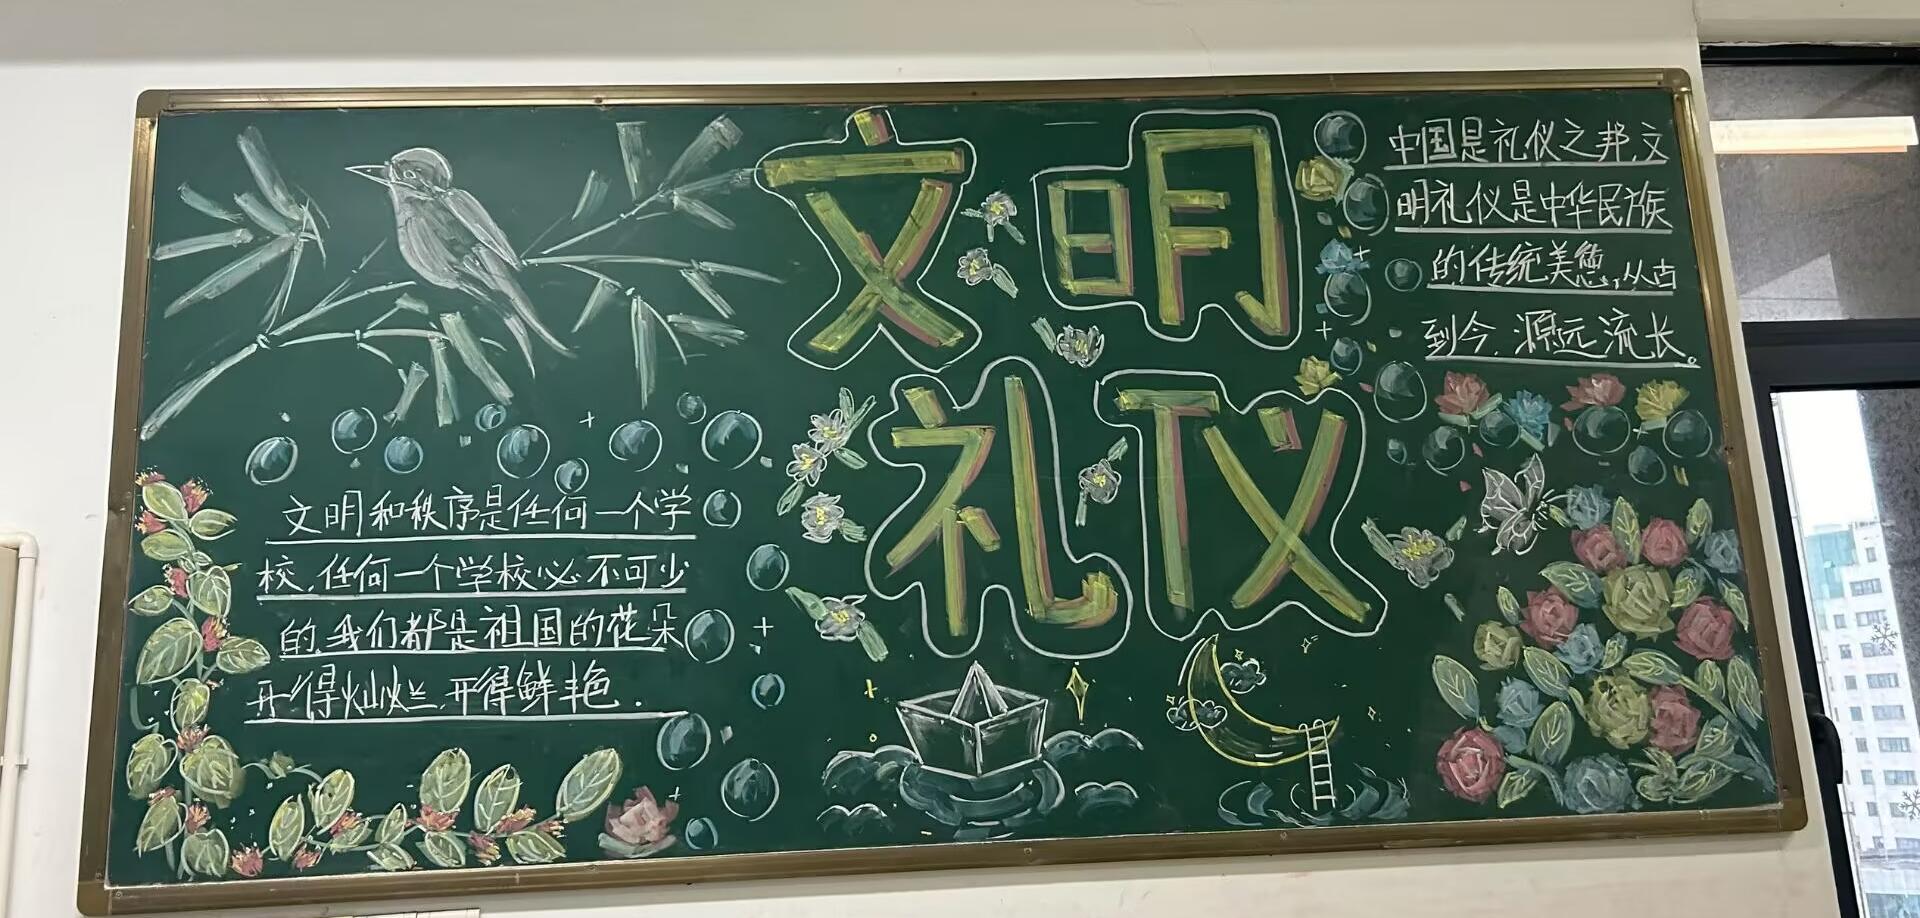 文明
礼仪
中国是礼仪之邦,文
明礼仪是中华民族
的传统美德,从古
到今,源远流长。
文明和秩序是任何一个学
校,任何一个学校必不可少
的,我们都是祖国的花朵
开得灿烂,开得鲜艳.